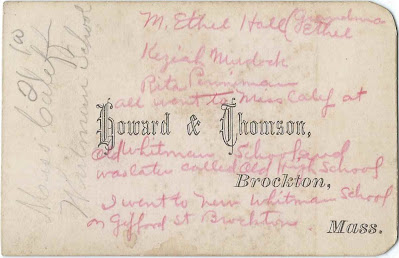 M. Ethel Hall (Grandma
Ethel
Keziah Murdock
Rita Penniman
all went to Miss Calef at
Howard & Thomson,
Old Whitman School and
was later called Old High School
Brockton,
I went to New Whitman School
on Gifford St Brockton
Mass.
Miss Calef
Whitman School